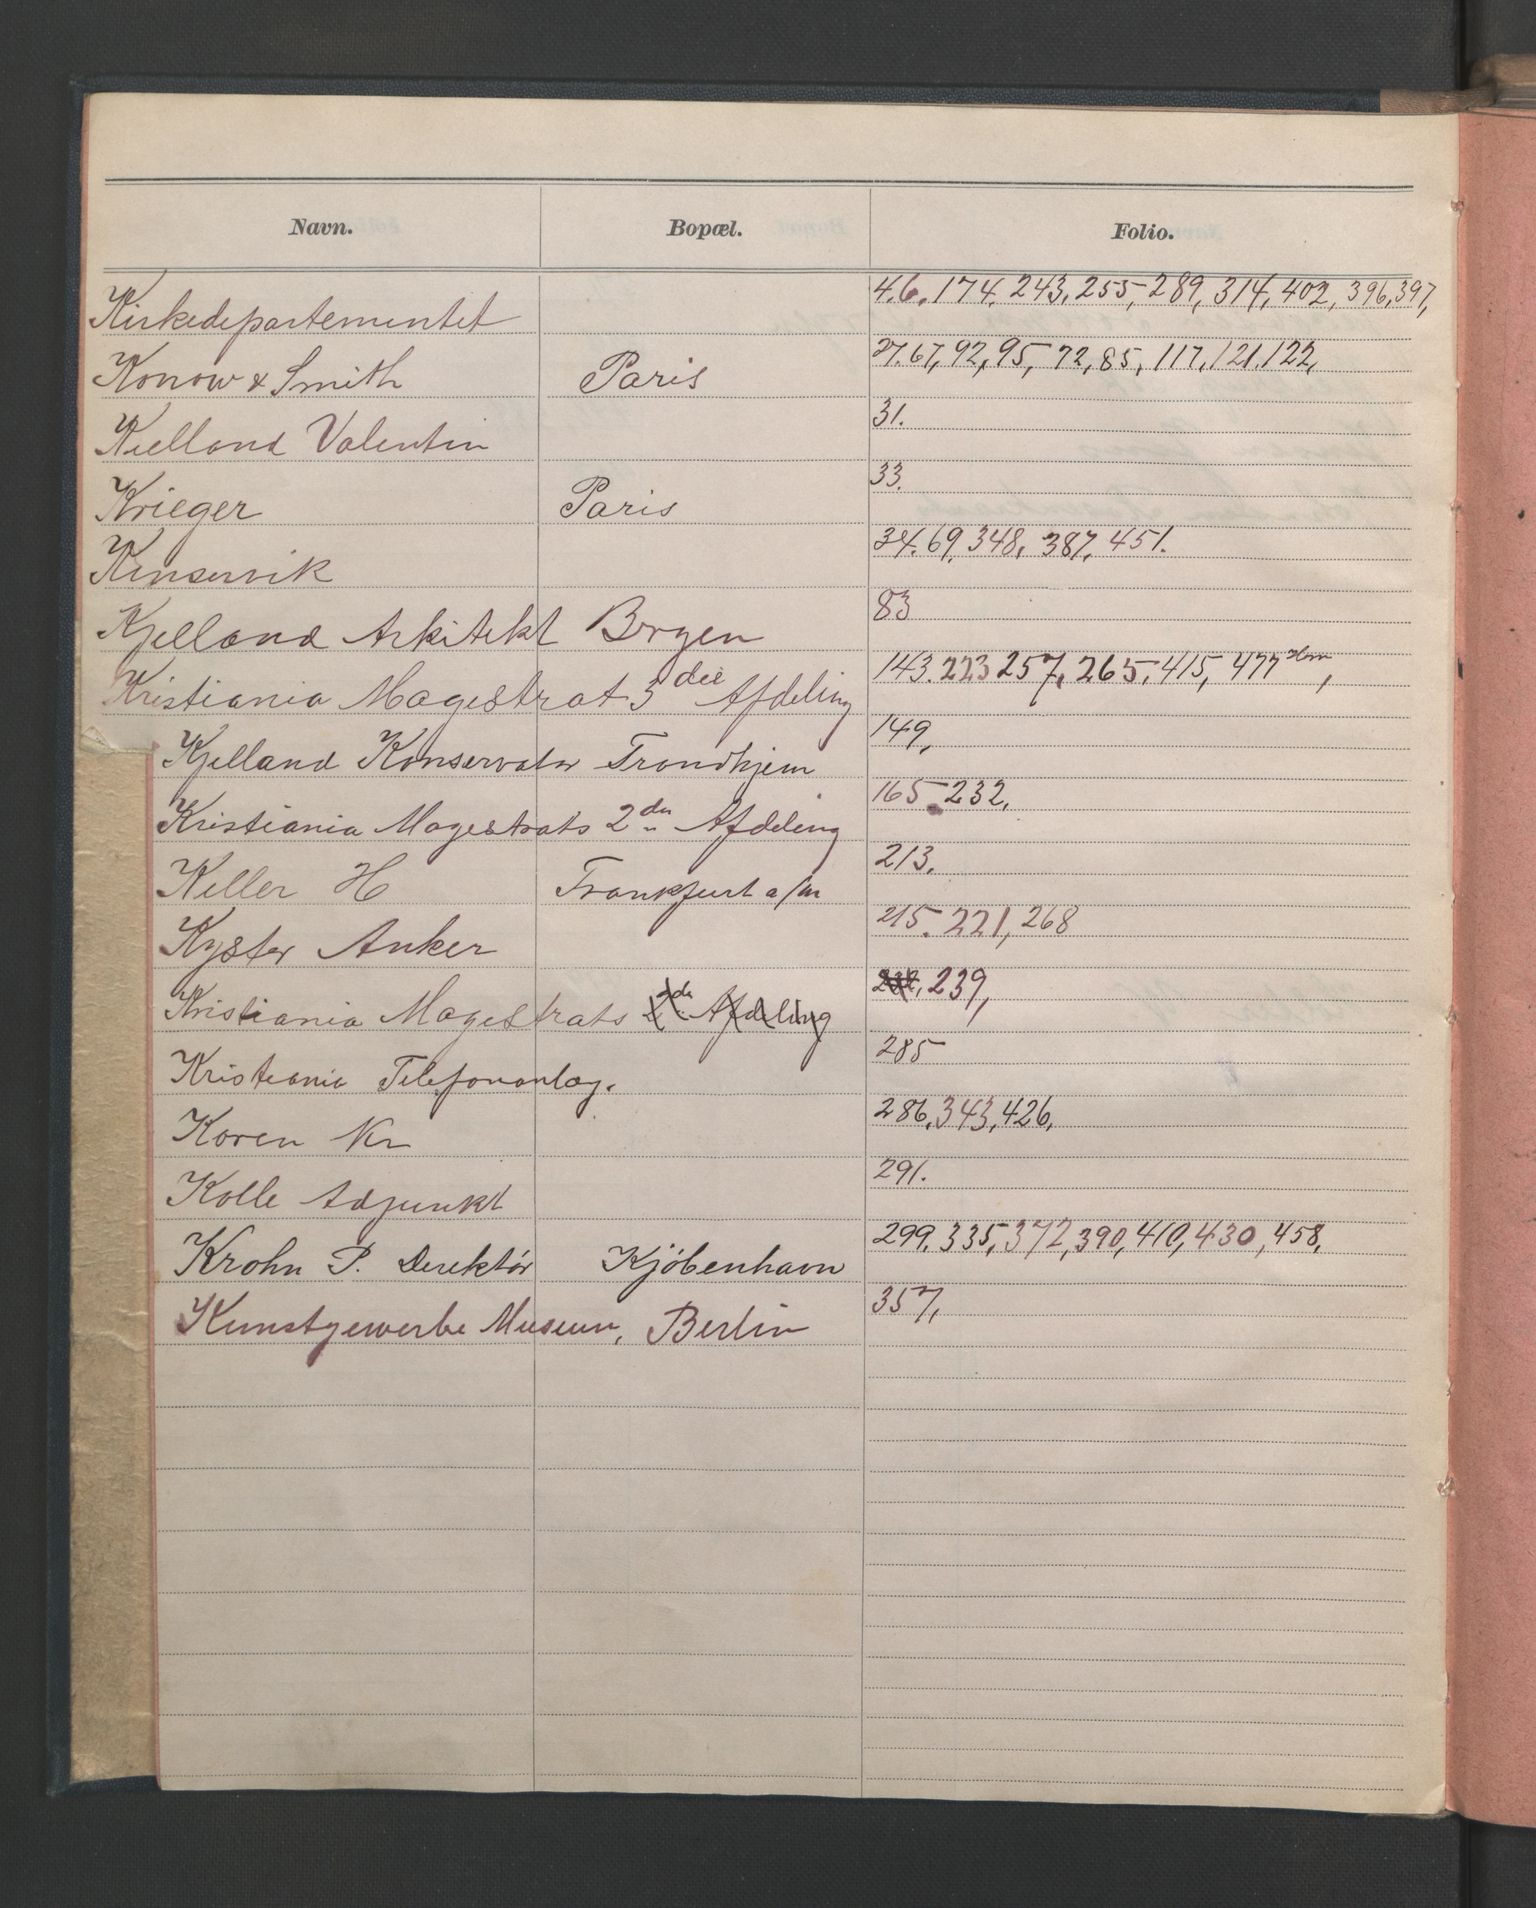 Navn. Bopæl. Folio.
Kirkedepartementet 4.6. 174. 243. 255, 289, 314, 402, 396, 397,
Konow & Smith Paris 27. 67, 92, 95, 72, 85, 117, 121. 122,
Kielland Valentin 31.
Krieger Paris 33.
Kinservik 34. 69, 348, 387, 451.
Kjelland Arkitekt Bergen 83
Kristiania Magestrat 3die Afdeling 143. 223 257, 265, 415, 477
Kjelland Konservator Trondhjem 149,
Kristiania Magestrats 2den Afdeling 165. 232,
Keller H Frankfurt a/m 213.
Kyster Anker 215. 221, 268
Kristiania Magestrats 2de Afdeling 239,
Kristiania Telefonanlæg. 285
Koren Kr 286, 343, 426,
Kolle Adjunkt 291.
Krohn P. Direktör Kjöbenhavn 299. 335, 372, 390, 410, 430, 458,
Kunstgewerbe Museum, Berlin 357,